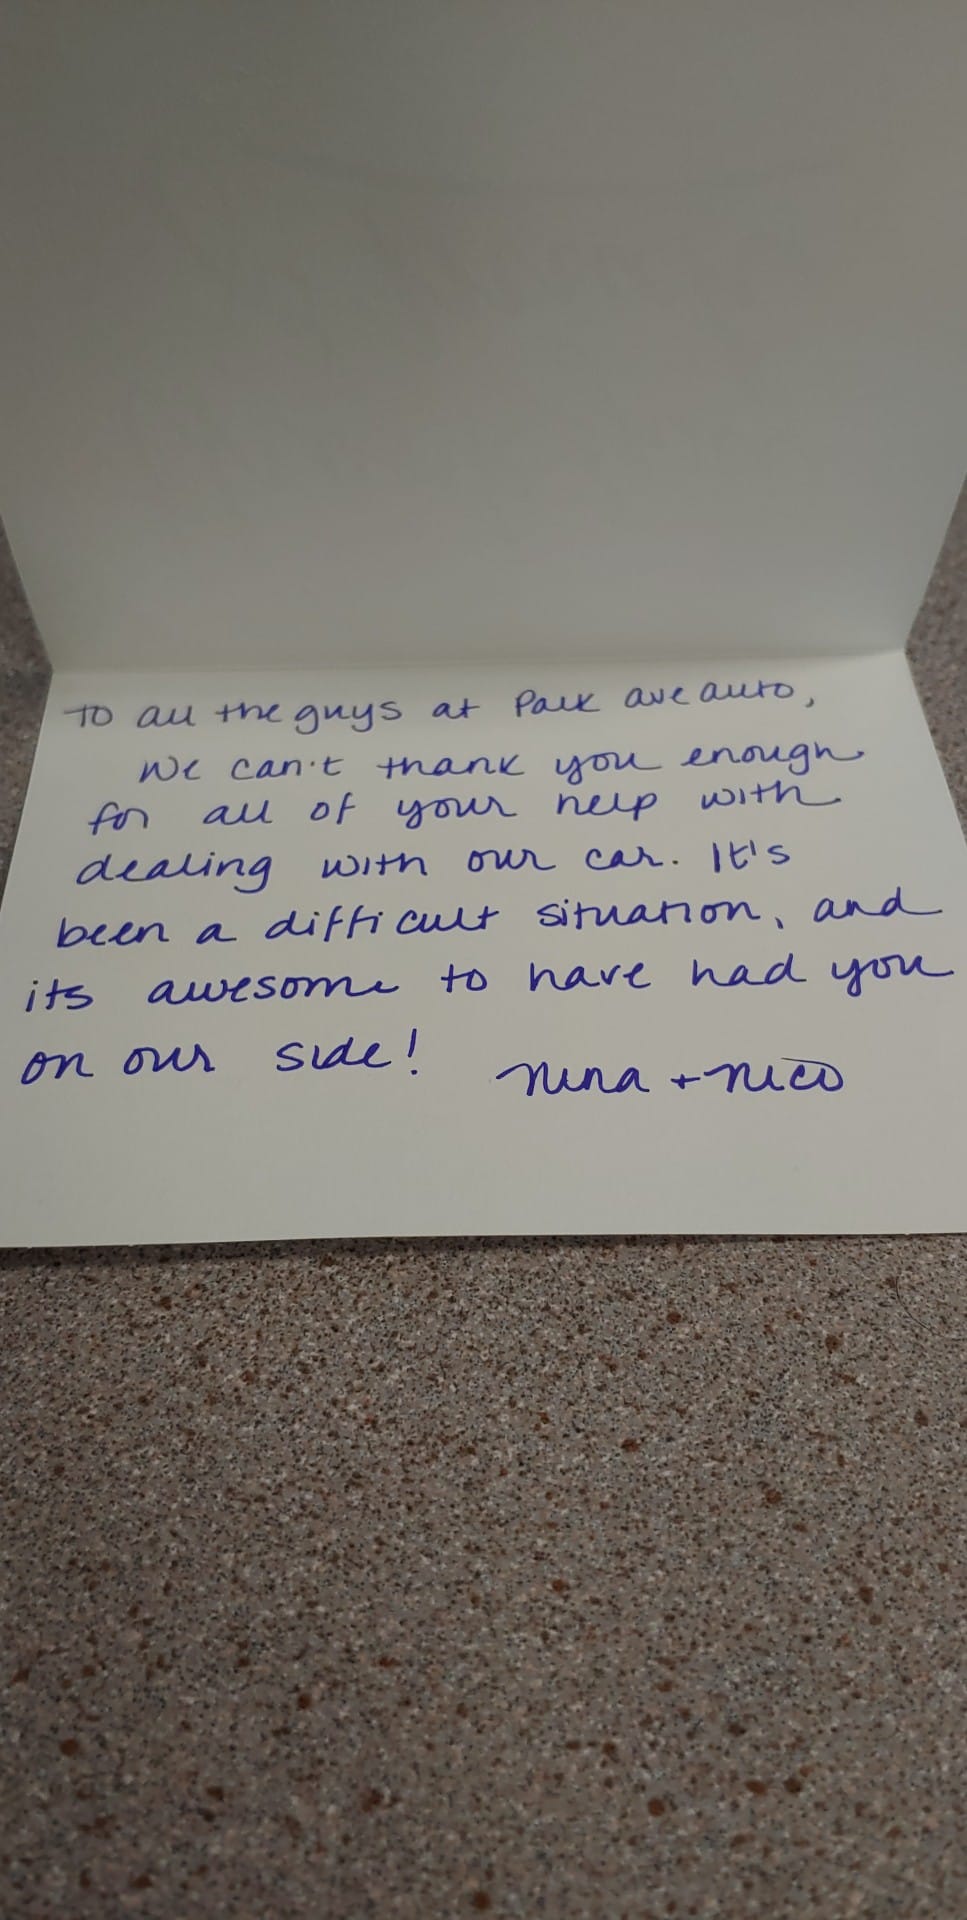 To all the guys at Park ave auto,
We can't thank you enough
for all of your help with
dealing with our car. It's
been a difficult situation, and
its awesome to have had you
on our side!
Nina + Nico